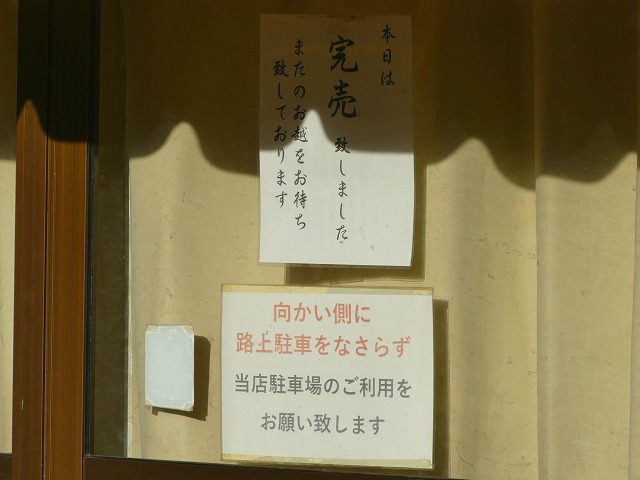 本日は
完売致しました
またのお越をお待ち
致しております
向かい側に
路上駐車をなさらず
当店駐車場のご利用を
お願い致します